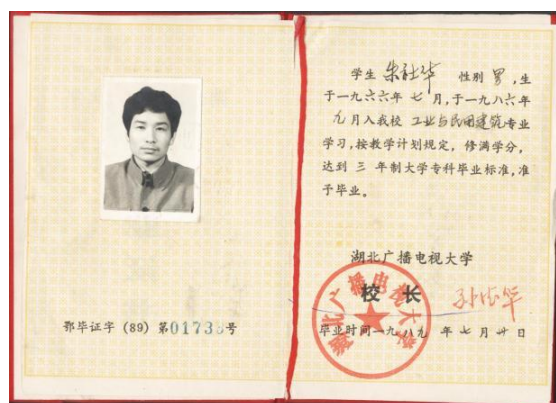 鄂毕证字 (89) 第01738号
学生 朱社华 性别 男，生
于一九六六年 七 月，于一九八六年
九 月入我校 工业与民用建筑 专业
学习，按教学计划规定，修满学分，
达到 三 年制大学专科毕业标准，准
予毕业。
湖北广播电视大学
校 长
毕业时间一九八九 年 七 月 廿 日
湖北广播电视大学